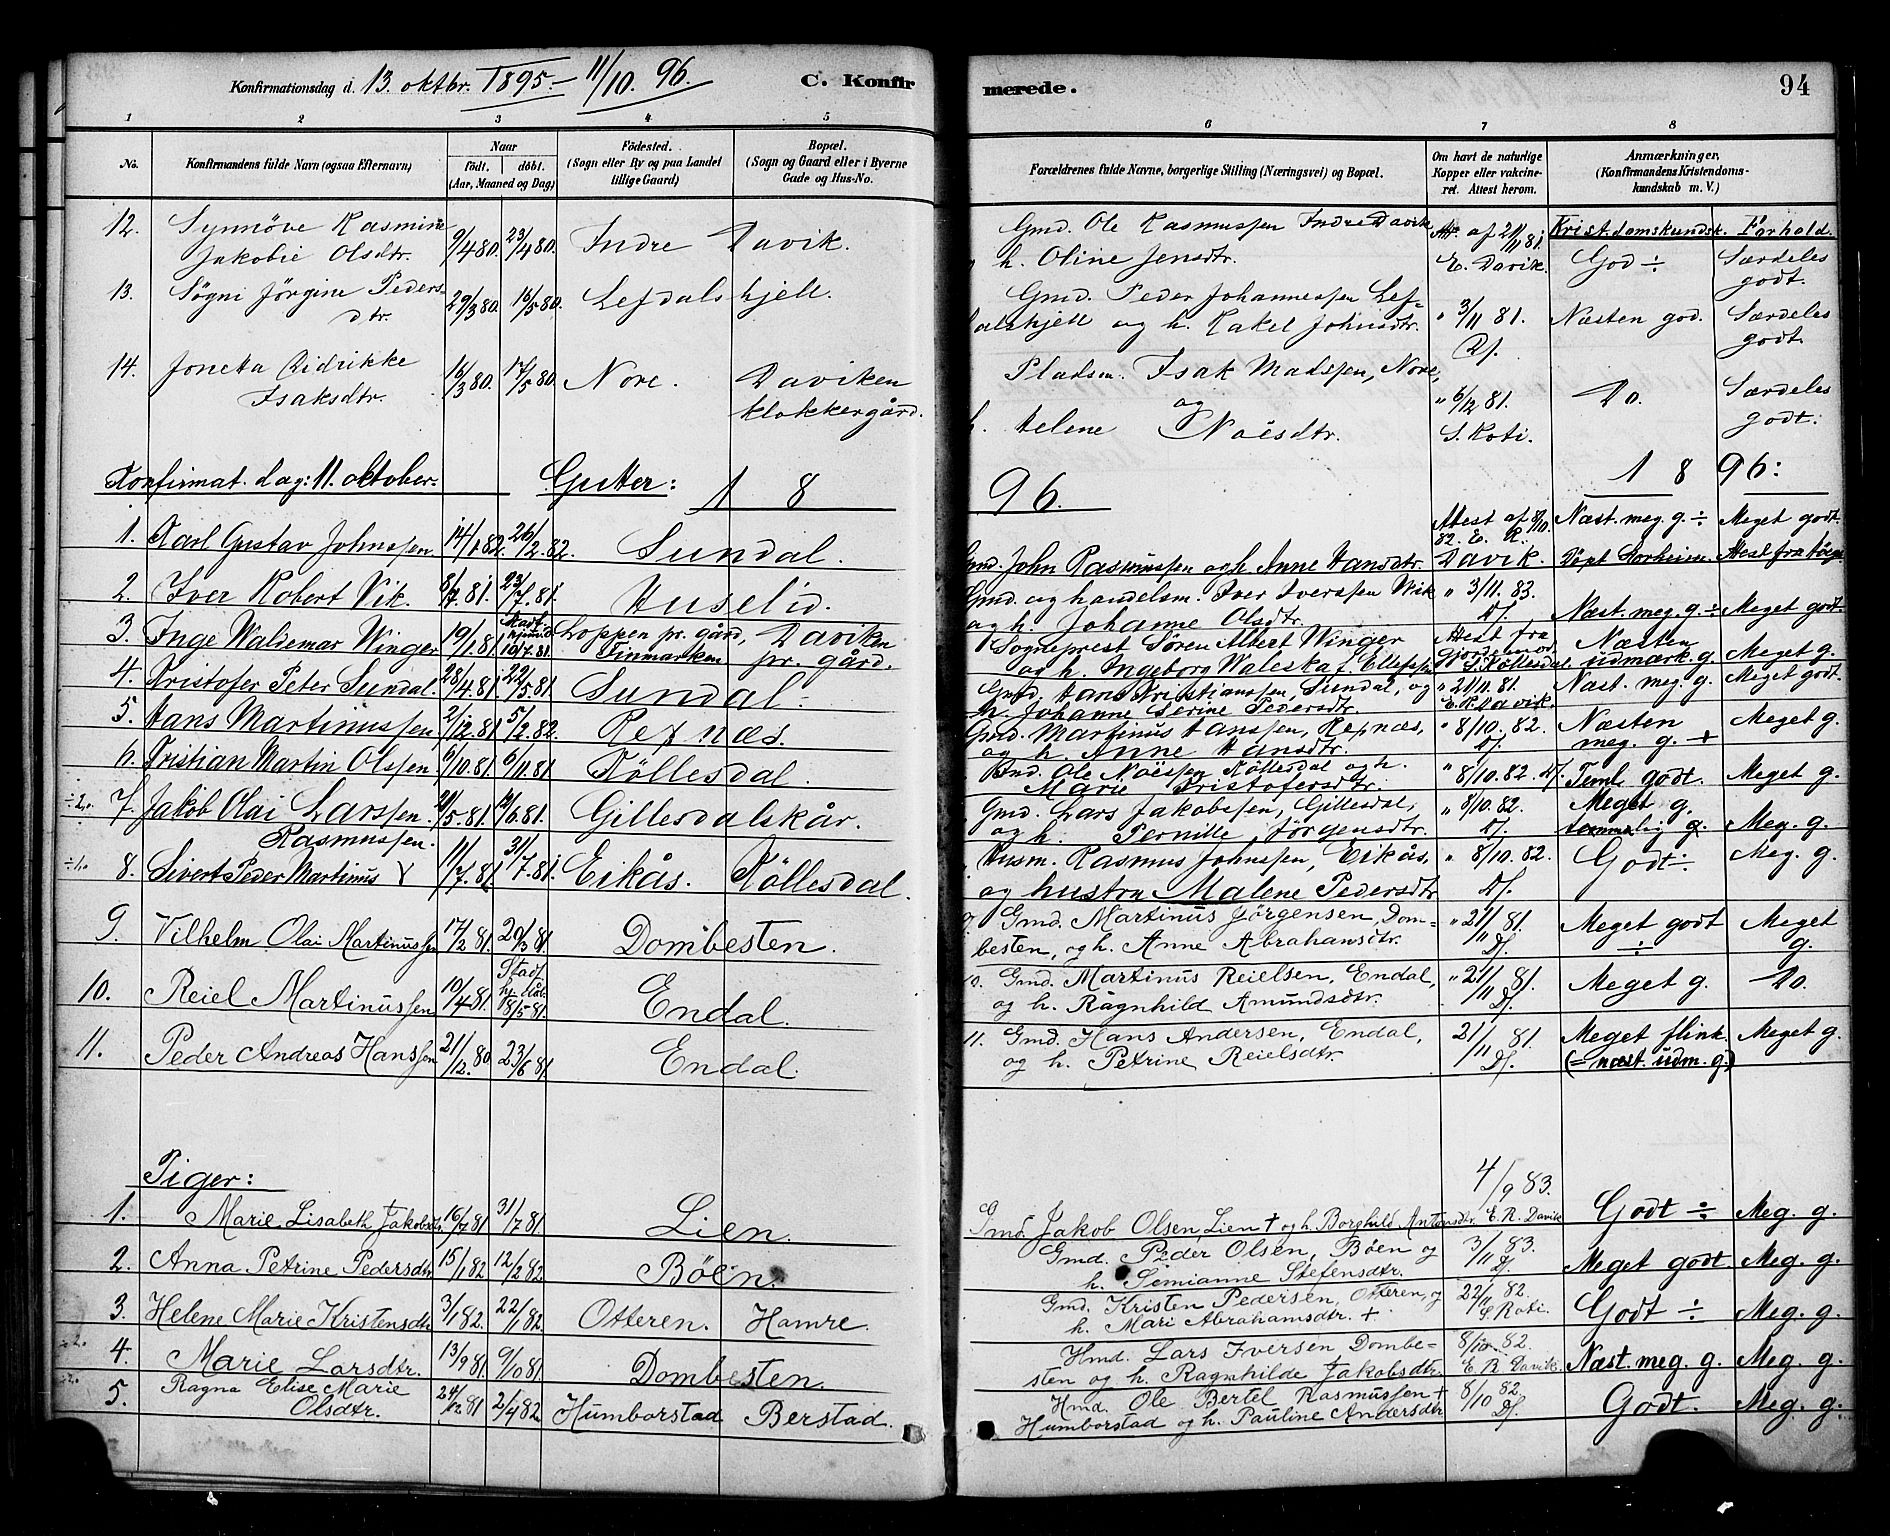 Konfirmationsdag d. 13. oktbr. 1895 — 11/10. 96. C. Konfirmerede. 94
1 2 3 4 5 6 7 8
No. Konfirmandens fulde Navn (ogsaa Efternavn) Naar födt. döbt. (Aar, Maaned og Dag) Födested. (Sogn eller By og paa Landet tillige Gaard) Bopæl. (Sogn og Gaard eller i Byerne Gade og Hus-No. Forældrenes fulde Navne, borgerlige Stilling (Næringsvei) og Bopæl. Om havt de naturlige Kopper eller vakcineret. Attest herom. Anmærkninger. (Konfirmandens Kristendomskundskab m. V.)
Krist.domskundsk. Forhold.
12. Synnöve Rasmine Jakobie Olsdtr. 9/4 80. 23/4 80. Indre Davik. Gmd. Ole Rasmussen Indre Davik h. Oline Jensdtr. Att. af 21/11 81 E. Davik. God ÷ Særdeles godt.
13. Søgni Jörgine Pedersdtr. 29/3 80. 16/5 80. Lefdalshjell. Gmd. Peder Johannessen Lefdalshjell og h. Rakel Johnsdtr. " 3/11 81. Ds. Næsten god. Særdeles godt.
14. Joneta Didrikke Isaksdtr. 16/3 80. 17/5 80. Nore. Daviken klokkergård. Pladsm. Isak Madssen, Nore, og h. Helene Noësdtr. " 6/12 81. S. Roti. Do. Særdeles godt.
Konfirmat. dag: 11. oktober. Gutter: 1896. 1896:
1. Karl Gustav Johnssen 14/1 82. 26/2. 82. Sundal. Gmd. John Rasmussen og h. Anne Hansdtr. Attest af 8/10 82. E. R. Davik. Næst. meg. g. ÷ Meget godt.
2. Iver Robert Vik. 8/7. 81. 23/7. 81. Huselid. Gmd. og handelsm. Iver Iverssen Wik og h. Johanne Olsdtr. " 3/11. 83. Ds. Næst. meg. g. ÷ Meget godt.
3. Inge Waldemar Winger 19/1. 81. 10/7. 81. Loppen pr. gård, Finmarken Daviken pr. gård. Sogneprest Sören Albert Winger og h. Ingeborg Waleska f. Ellefsen Attest fra Næsten udmærk. g. Meget g.
4. Kristofer Peter Sundal. 28/4. 81. 22/5. 81. Sundal. Gmd. Hans Kristianssen, Sundal, og h. Johanne Serine Pedersdtr. " 21/11. 81. E. R. Davik. Næst. meg. g. Meget godt.
5. Hans Martinussen 2/12. 81. 5/2. 82. Refnæs. Gmd. Martinus Hanssen, Refnæs, og h. Anne Hansdtr. " 8/10. 82. Ds. Næsten meg. g. + Meget g.
6. Kristian Martin Olssen 9/10. 81. 6/11. 81. Köllesdal. Gmd. Ole Noëssen Köllesdal og h. Marie Kristofersdtr. " 8/10. 82. Ds. Teml. godt. Meget g.
7. Jakob Olai Larssen. Gillesdalskår. Gmd. Lars Jakobssen, Gillesdal, og h. Pernille Jörgensdtr. " 8/10. 82. Ds. Meget g. Meg. g.
8. Sivert Peder Martinus Rasmussen. 11/7. 81. 31/7. 81. Eikås. Köllesdal. Husm. Rasmus Johnssen, Eikås, og hustru Malene Pedersdtr. " 8/10. 82. Ds. Godt ÷ Meg. g.
9. Vilhelm Olai Martinussen 17/2 81. 20/3 81. Dombesten. 9. Gmd. Martinus Jörgensen, Dombesten, og h. Anne Abrahamsdtr. " 21/11 81. Ds. Meget godt ÷ Meget g.
10. Reiel Martinussen 10/4 81. 8/5 81. Endal. 10. Gmd. Martinus Reielsen, Endal, og h. Ragnhild Amundsdtr. " 21/11 81. Ds. Meget g. Do.
11. Peder Andreas Hanssen 21/12. 80 23/6 81 Endal. 11. Gmd. Hans Andersen, Endal, og h. Petrine Reielsdtr. 21/11 81. Ds. Meget flink. (= næst. udm. g.) Meget g.
Piger:
1. Marie Lisabeth Jakobsdtr. 16/7 81 31/7 81. Lien. Gmd. Jakob Olsen, Lien + og h. Borghild Antonsdtr. 4/9 83. E. R. Davik Godt ÷ Meg. g.
2. Anna Petrine Pedersdtr 15/1 82 12/2 82 Böen. Gmd. Peder Olsen, Böen og h. Simianne Stefensdtr. 3/11 83. Ds. Meget godt. Meg. g.
3. Helene Marie Kristensdtr 3/1 82. 22/1 82. Otteren. Hamre. Gmd. Kristen Pedersen, Otteren, og h. Mari Abrahamsdtr. + 22/11 82. S Roti. Godt ÷ Meg. g.
4. Marie Larsdtr. 13/9 81. 9/10 81. Dombesten. Hmd. Lars Iversen Dombesten og h. Ragnhilde Jakobsdtr 8/10. 82. E R Davik. Næst. meg. g. Meg. g.
5. Ragna Elise Marie Olsdtr. 24/12 81 2/4 82 Humborstad Berstad. Hmd. Ole Bertel Rasmussen + Humborstad og h. Pauline Andersdtr 8/10 82. Ds. Godt. Meg. g.